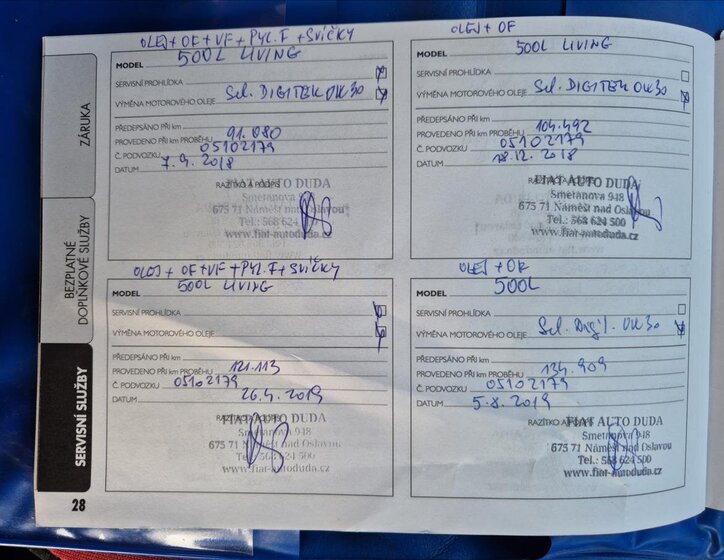 ZÁRUKA
BEZPLATNÉ
DOPLŇKOVÉ SLUŽBY
SERVISNÍ SLUŽBY
28
OLEJ + OF + VF + PYL. F + SVÍČKY
MODEL 500L LIVING
SERVISNÍ PROHLÍDKA
VÝMĚNA MOTOROVÉHO OLEJE Sel. DIGITEK 0W30
PŘEDEPSÁNO PŘI km
PROVEDENO PŘI km PROBĚHU 91.080
Č. PODVOZKU 05102179
DATUM 7. 9. 2018
RAZÍTKO A PODPIS
FIAT AUTO DUDA
Smetanova 948
675 71 Náměšť nad Oslavou
Tel.: 568 624
www.fiat-autoduda.cz
OLEJ + OF
MODEL 500L LIVING
SERVISNÍ PROHLÍDKA
VÝMĚNA MOTOROVÉHO OLEJE Sel. DIGITEK 0W30
PŘEDEPSÁNO PŘI km
PROVEDENO PŘI km PROBĚHU 104.492
Č. PODVOZKU 05102179
DATUM 18.12. 2018
FIAT AUTO DUDA
Smetanova 948
675 71 Náměšť nad Oslavou
Tel.: 568 624 500
www.fiat-autoduda.cz
OLEJ + OF + VF + PYL. F + SVÍČKY
MODEL 500L LIVING
SERVISNÍ PROHLÍDKA
VÝMĚNA MOTOROVÉHO OLEJE
PŘEDEPSÁNO PŘI km
PROVEDENO PŘI km PROBĚHU 121.113
Č. PODVOZKU 05102179
DATUM 26.4. 2019
FIAT AUTO DUDA
Smetanova 948
675 71 Náměšť nad Oslavou
Tel.: 568 624 500
www.fiat-autoduda.cz
OLEJ + OF
MODEL 500L
SERVISNÍ PROHLÍDKA
VÝMĚNA MOTOROVÉHO OLEJE Sel. Digit. 0W30
PŘEDEPSÁNO PŘI km
PROVEDENO PŘI km PROBĚHU 134.909
Č. PODVOZKU 05102179
DATUM 5.8. 2019
RAZÍTKO A
FIAT AUTO DUDA
Smetanova 948
675 71 Náměšť nad Oslavou
Tel.: 568 624 500
www.fiat-autoduda.cz